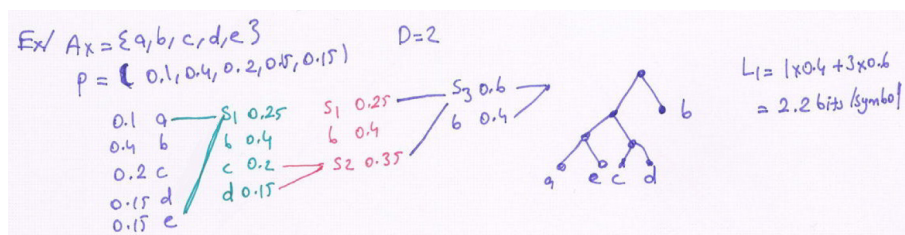 Ex/ Ax = {a,b,c,d,e} D=2
P = ( 0.1, 0.4, 0.2, 0.15, 0.15)
0.1 a
0.4 b
0.2 c
0.15 d
0.15 e
S1 0.25
b 0.4
c 0.2
d 0.15
S1 0.25
b 0.4
S2 0.35
S3 0.6
b 0.4
b
a e c d
L1 = 1x0.4 + 3x0.6
= 2.2 bits/symbol